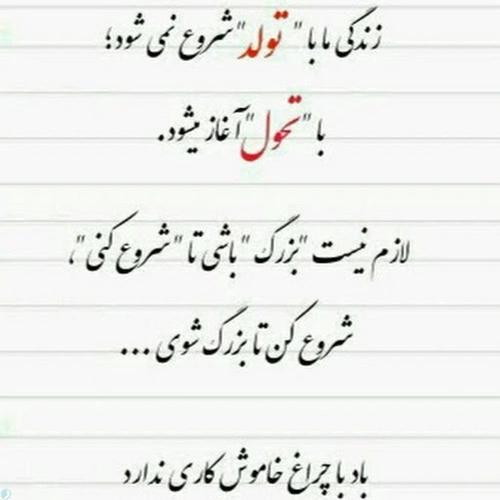 زندگی ما با " تولد " شروع نمی شود؛
با " تحول " آغاز میشود.
لازم نیست "بزرگ " باشی تا " شروع کنی "،
شروع کن تا بزرگ شوی ...
باد با چراغ خاموش کاری ندارد